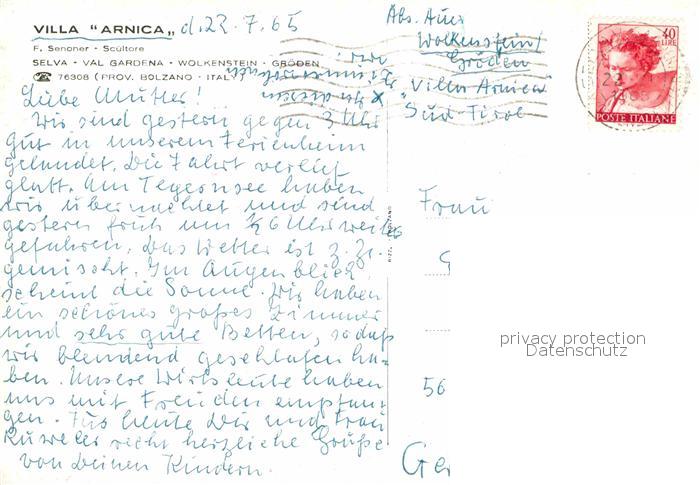 VILLA "ARNICA" d. 22. 7. 65
F. Senoner - Scultore
SELVA - VAL GARDENA - WOLKENSTEIN - GRÖDEN
☎ 76308 (PROV. BOLZANO - ITALY)
Liebe Mutter!
Wir sind gestern gegen 3 Uhr
gut in unserem Ferienheim
gelandet. Die Fahrt verlief
glatt. Am Tegernsee haben
wir übernachtet und sind
gestern früh um ½ 6 Uhr weiter
gefahren. Das Wetter ist z. Zt.
gemischt. Im Augenblick
scheint die Sonne. Wir haben
ein schönes großes Zimmer
und sehr gute Betten, sodaß
wir blendend geschlafen ha-
ben. Unsere Wirtsleute haben
uns mit Freuden empfan-
gen. Für heute Dir und Frau
recht herzliche Grüße
von Deinen Kindern.
Abs. Auer
Wolkenstein/
Gröden
"Villa Arnica"
Süd-Tirol
40
LIRE
POSTE ITALIANE
22
Frau
G
56
Ger
RIZZI - BOLZANO
privacy protection
Datenschutz